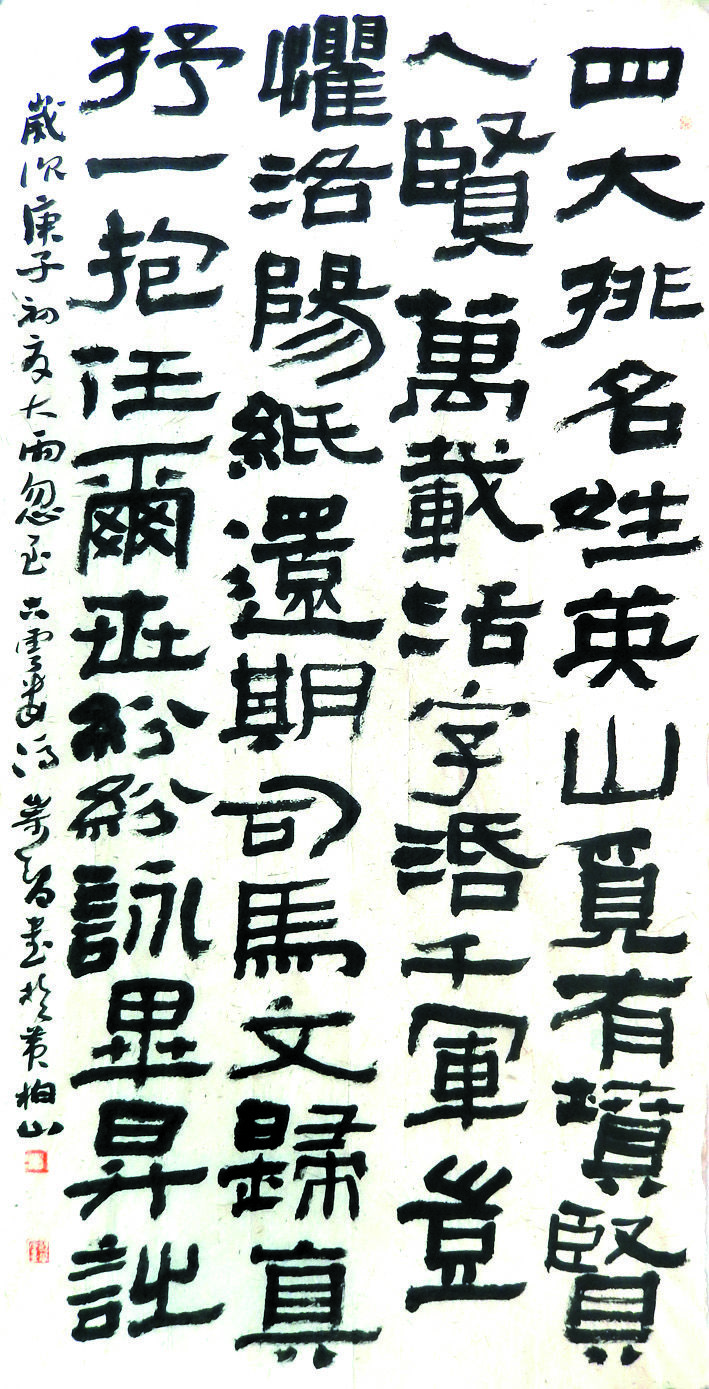 四大排名姓英山覓有墳賢
人賢萬載活字活千軍豈
懼洛陽紙還期司馬文歸真
抒一抱任爾世紛紛詠畢昇詩
歲次庚子初夏大雨忽至六雲書於黃柏山